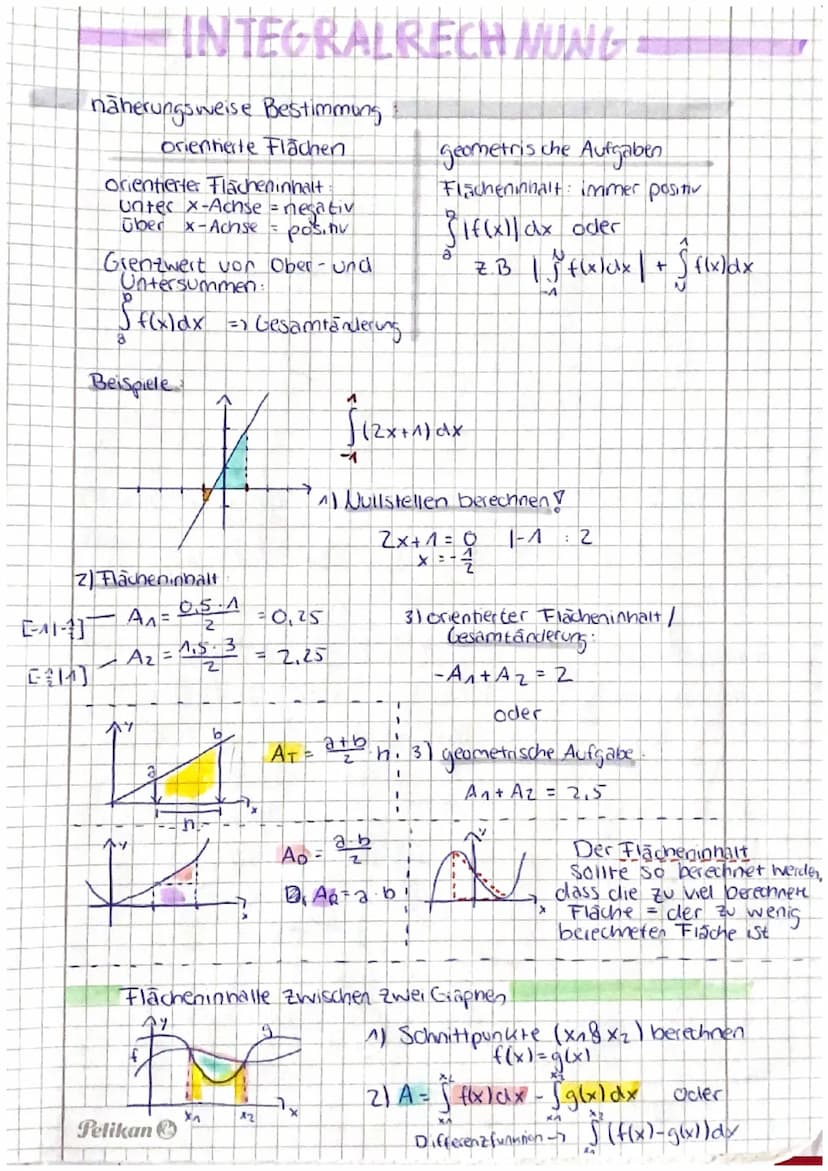 INTEGRALRECHNUNG
näherungsweise Bestimmung:
orientierte Flächen
orientierter Flächeninhalt:
unter x-Achse = negativ
über x-Achse = positiv
Grenzwert von Ober- und
Untersummen:
∫ₐᵇ f(x)dx => Gesamtänderung
geometrische Aufgaben
Flächeninhalt: immer positiv
∫ₐᵇ |f(x)| dx oder
z B |∫₋₁ᴺ f(x)dx| + ∫ɴ¹ f(x)dx
Beispiele:
∫₋₁¹ (2x+1) dx
1) Nullstellen berechnen!
2x+1 = 0 |-1 :2
x = -1/2
2) Flächeninhalt
[-1|-1/2] — A1 = 0,5·1/2 = 0,25
[-1/2|1] — A2 = 1,5·3/2 = 2,25
3) orientierter Flächeninhalt /
Gesamtänderung:
-A1 + A2 = 2
oder
3) geometrische Aufgabe.
A1 + A2 = 2,5
y
a
b
x
h
AT = a+b/2 · h
y
AD = a·b/2
AR = a·b
y
x
Der Flächeninhalt
sollte so berechnet werden,
dass die zu viel berechnete
Fläche = der zu wenig
berechneten Fläche ist
Flächeninhalte zwischen zwei Graphen
y
f
g
x1
x2
x
1) Schnittpunkte (x1 & x2) berechnen
f(x) = g(x)
2) A = ∫ₓ₁ˣ² f(x) dx - ∫ₓ₁ˣ² g(x) dx oder
Differenzfunktion -> ∫ₓ₁ˣ² (f(x)-g(x))dx
Pelikan